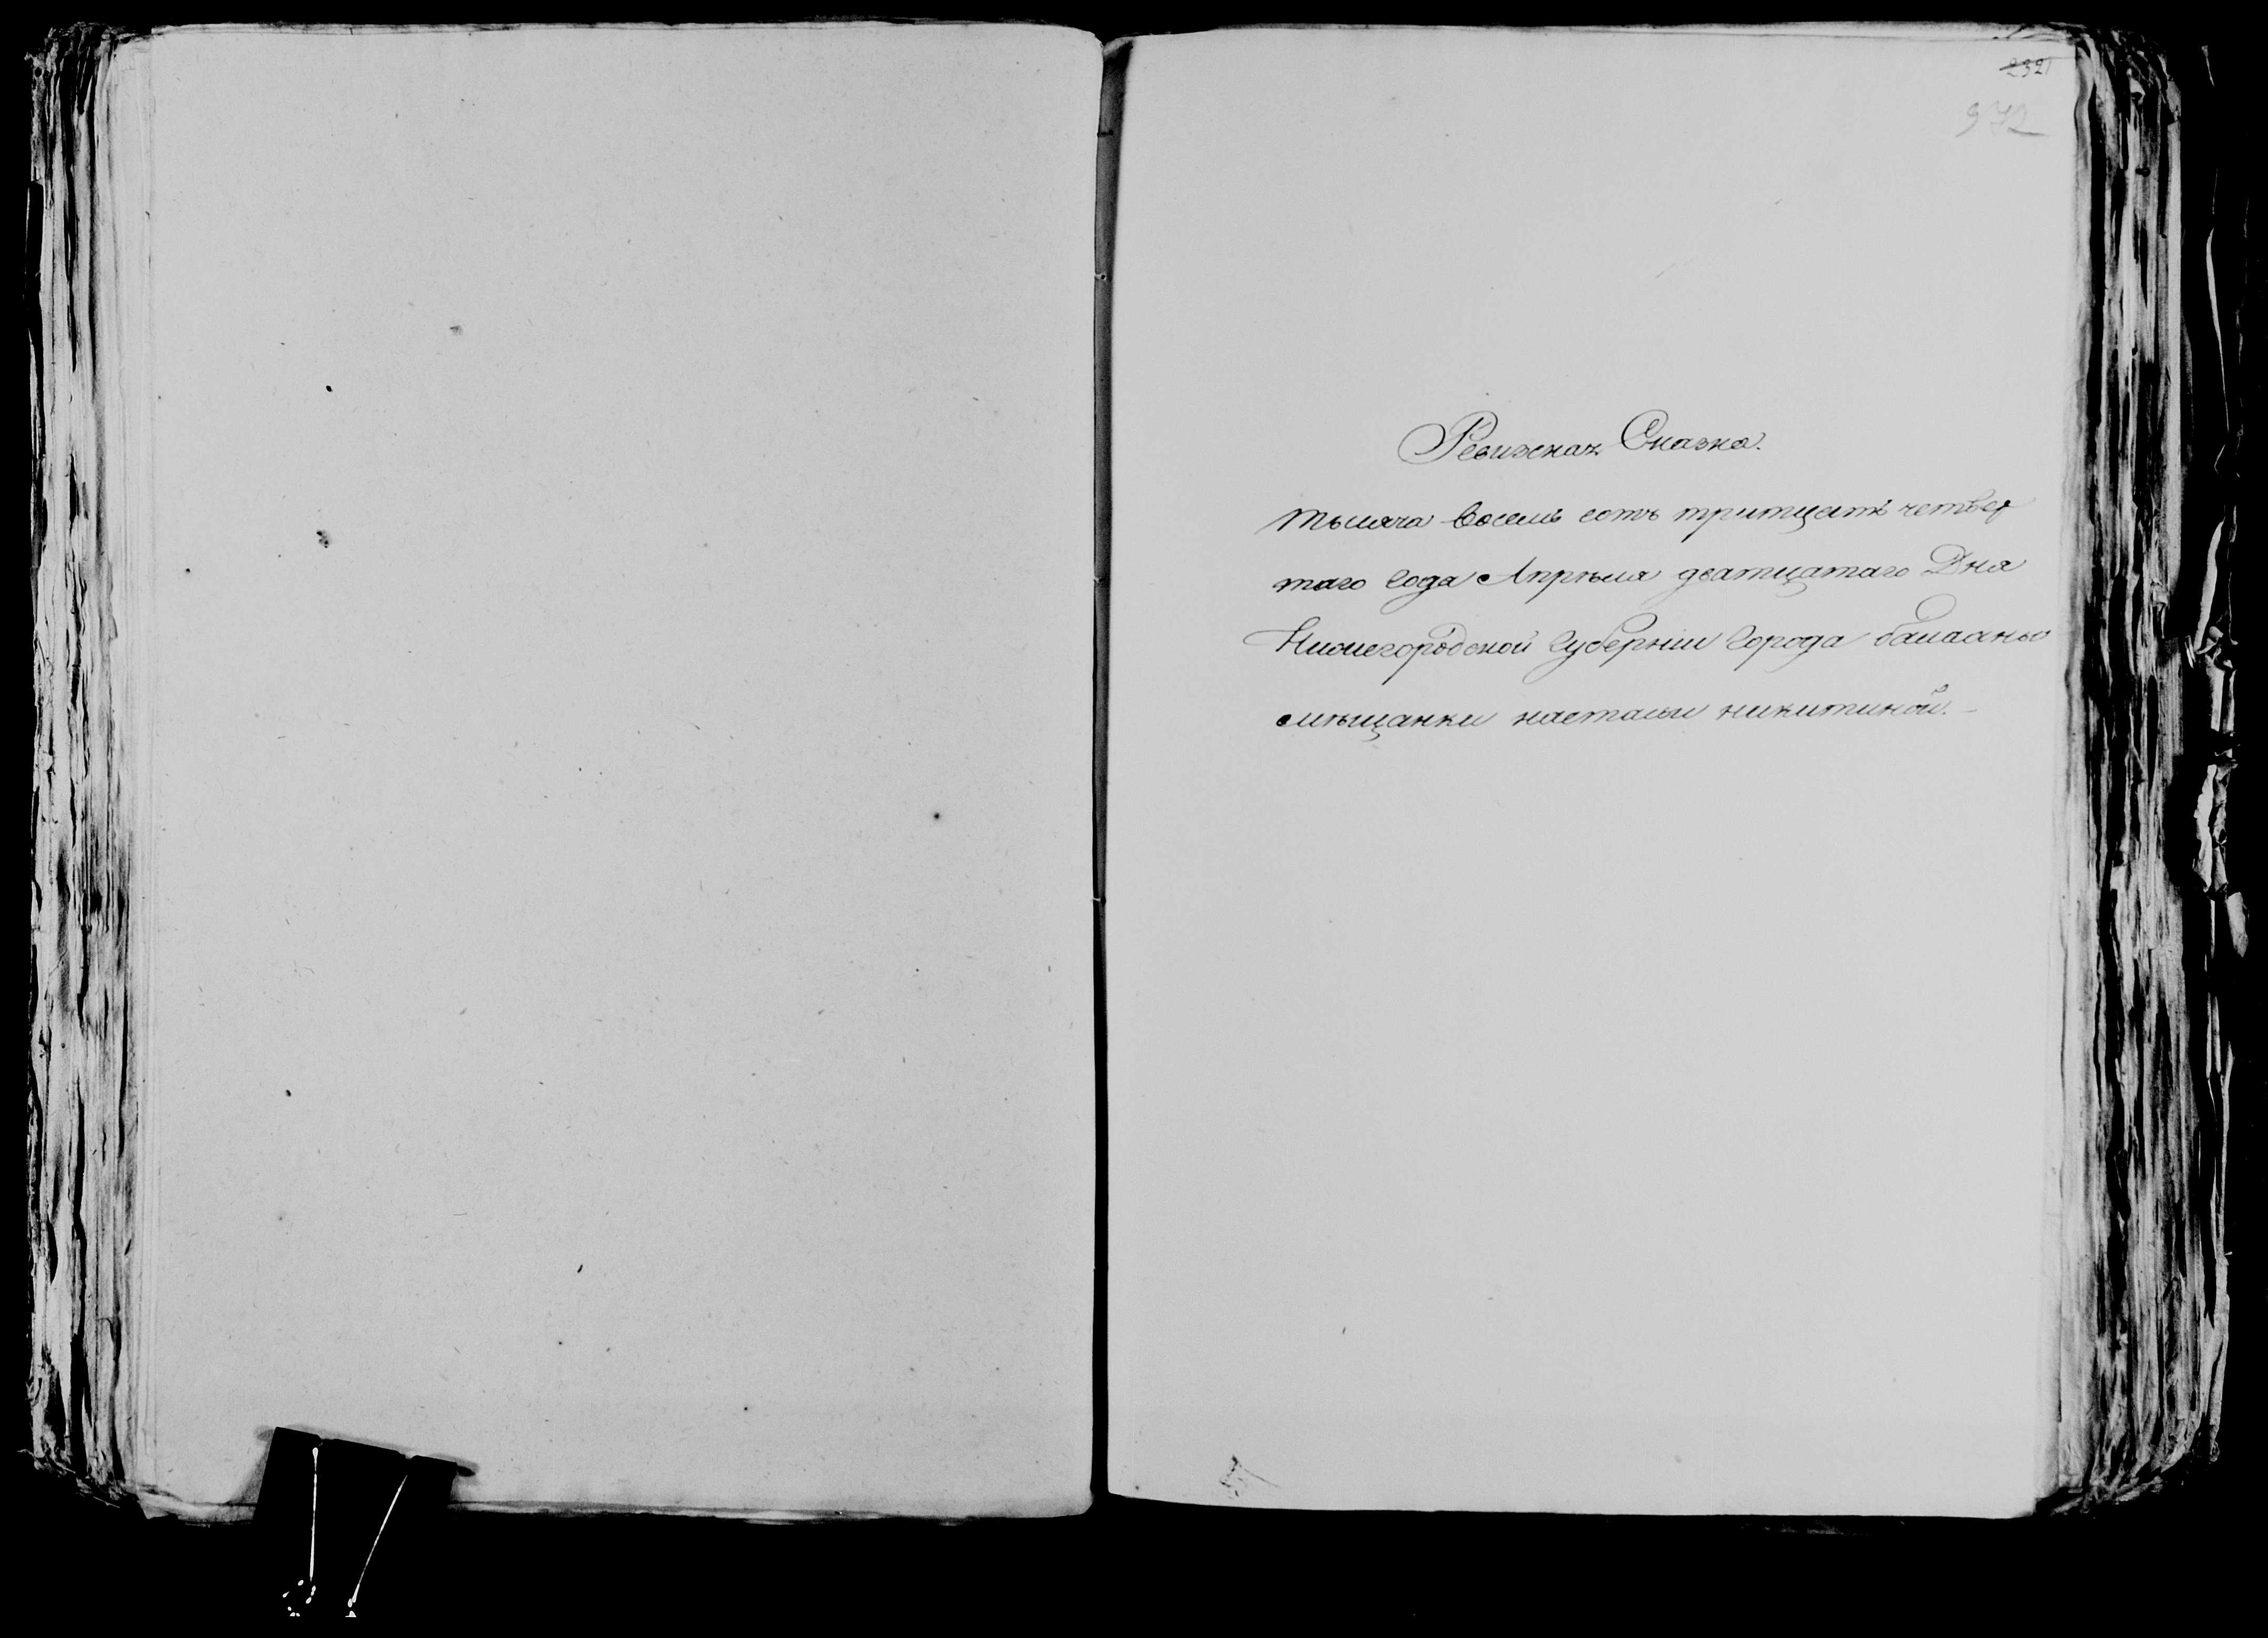 232
972
Ревижская Сказка.
тысяча восемь сотъ тритцать четвер
таго года Апрѣля дватцатаго Дня
Нижегородской губернии города балахны
мѣщанки настасьи никитиной.